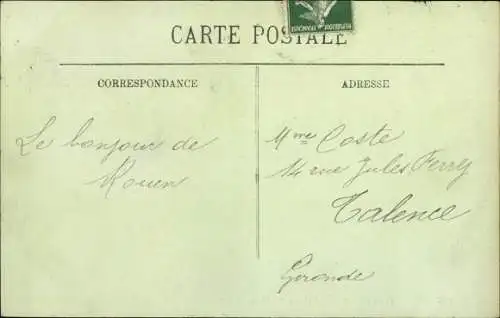 CARTE POSTALE
CORRESPONDANCE
ADRESSE
Le bonjour de
Rouen
Mme Coste
14 rue Jules Ferry
Talence
Gironde